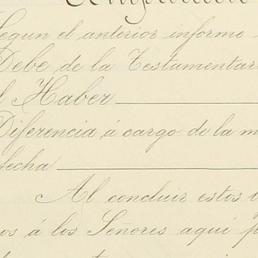 Segun el anterior informe
Debe de la Testamentar
l Haber
Diferencia á cargo de la m
fecha
Al concluir estos
os á los Señores aquí p